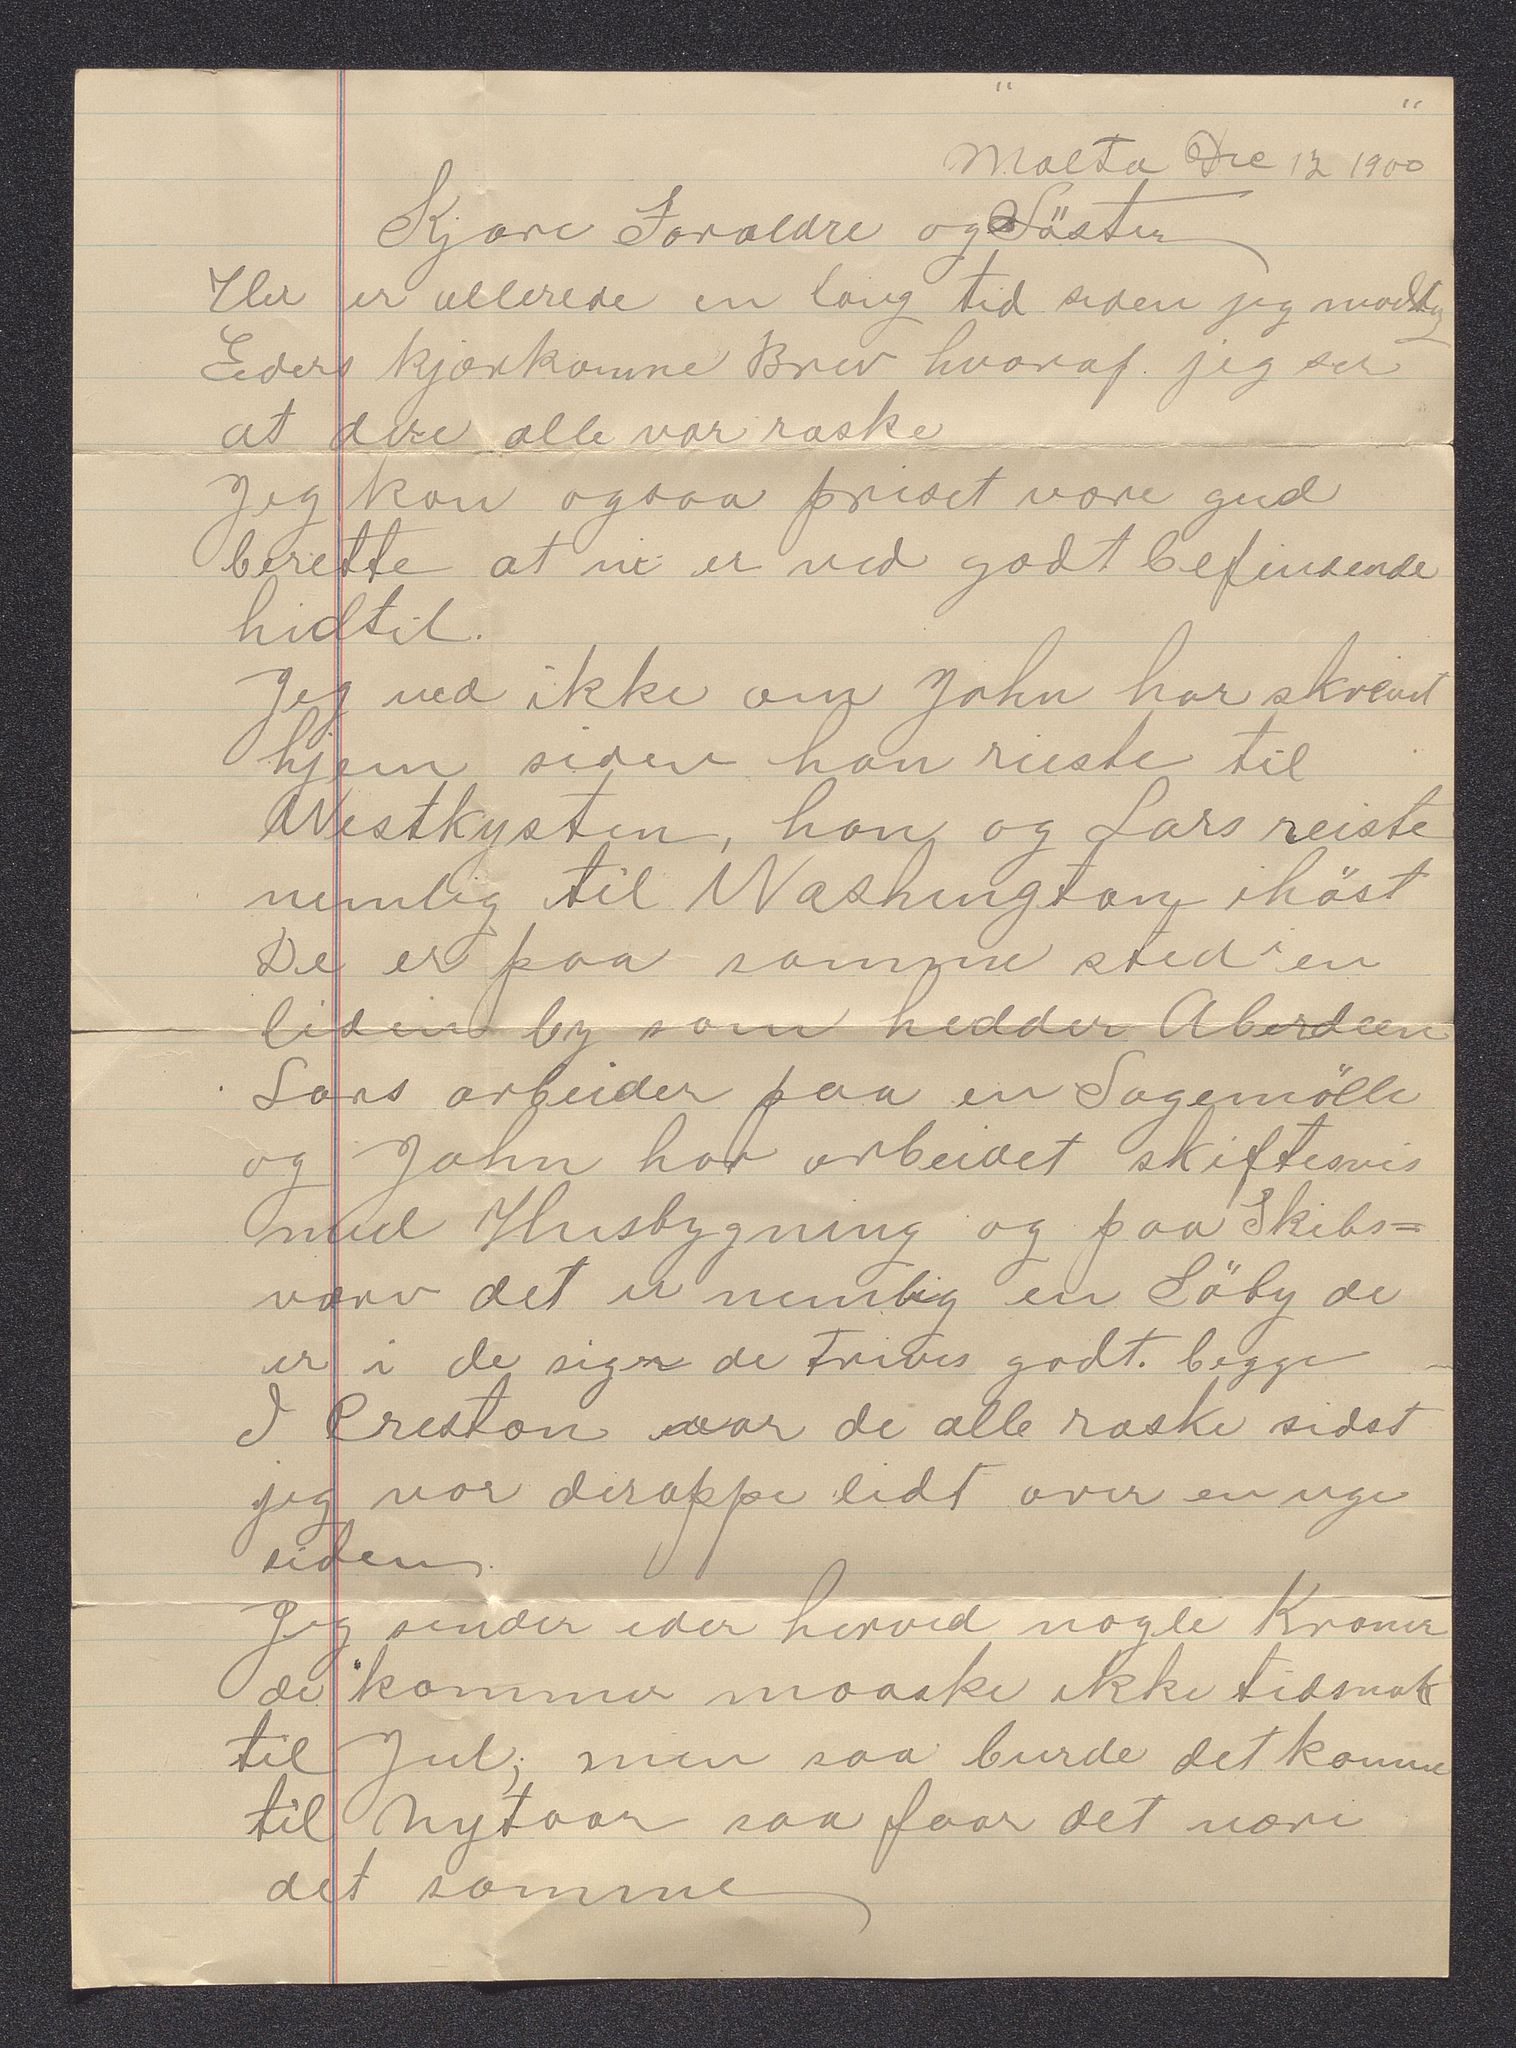 Malta Dec 12 1900
Kjære Foraldre og Söster
Her er allerede en lang tid siden jeg modtog
Eders kjærkomne Brev hvoraf jeg ser
at dere alle var raske
Jeg kan ogsaa priset være gud
berette at vi er ved godt befindende
hidtil.
Jeg ved ikke om John har skrevet
hjem siden han rieste til
Westkysten, han og Lars reiste
nemlig til Washington ihöst
De er paa samme sted i en
liden by som hedder Aberdeen
Lars arbeider paa en Sagemölle
og John har arbeidet skiftesvis
med Husbygning og paa Skibs=
værv det er nemlig en Söby de
er i de siger de trives godt. begge
I Creston var de alle raske sidst
jeg var deroppe lidt over en uge
siden.
Jeg sender eder herved nogle Kroner
de kommer maaske ikke tidsnok
til Jul; men saa burde det komme
til Nytaar saa faar det være
det samme